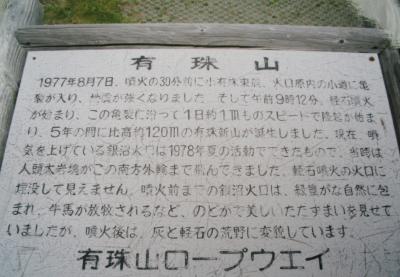 有珠山
1977年8月7日、噴火の30分前に小有珠東麓、火口原内の小道に亀
裂が入り、地震が強くなりました。そして午前9時12分、軽石噴火
が始まり、この亀裂に沿って1日約1mものスピードで隆起が始ま
り、5年の間に比高約120mの有珠新山が誕生しました。現在、噴
気を上げている銀沼火口は1978年夏の活動でできたもので、当時は
人頭大岩塊がこの南方外輪まで飛んできました。軽石噴火の火口に
埋没して見えません。噴火前までの銀沼火口は、緑豊かな自然に包
まれ、牛馬が放牧されるなど、のどかで美しいたたずまいを見せて
いましたが、噴火後は、灰と軽石の荒野に変貌しています。
有珠山ロープウエイ